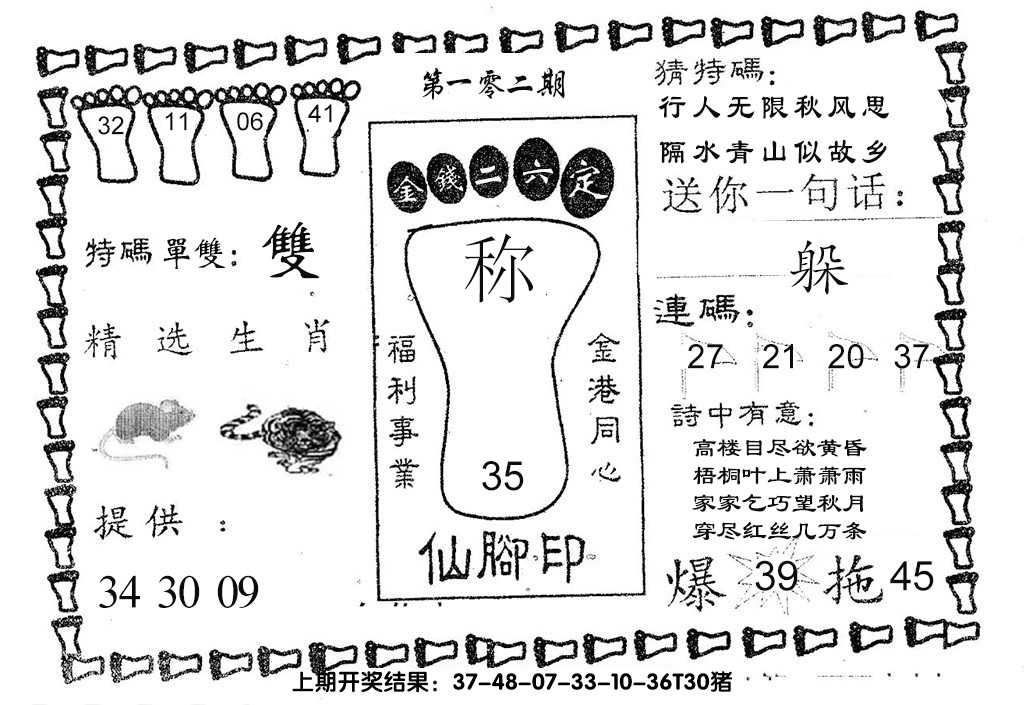 第一零二期
32 11 06 41
特碼單雙：雙
精选生肖
提供：
34 30 09
金錢二六定
称
福利事業
金港同心
35
仙腳印
猜特碼：
行人无限秋风思
隔水青山似故乡
送你一句话：
躲
連碼：
27 21 20 37
詩中有意：
高楼目尽欲黄昏
梧桐叶上萧萧雨
家家乞巧望秋月
穿尽红丝几万条
爆 39 拖 45
上期开奖结果：37-48-07-33-10-36T30猪